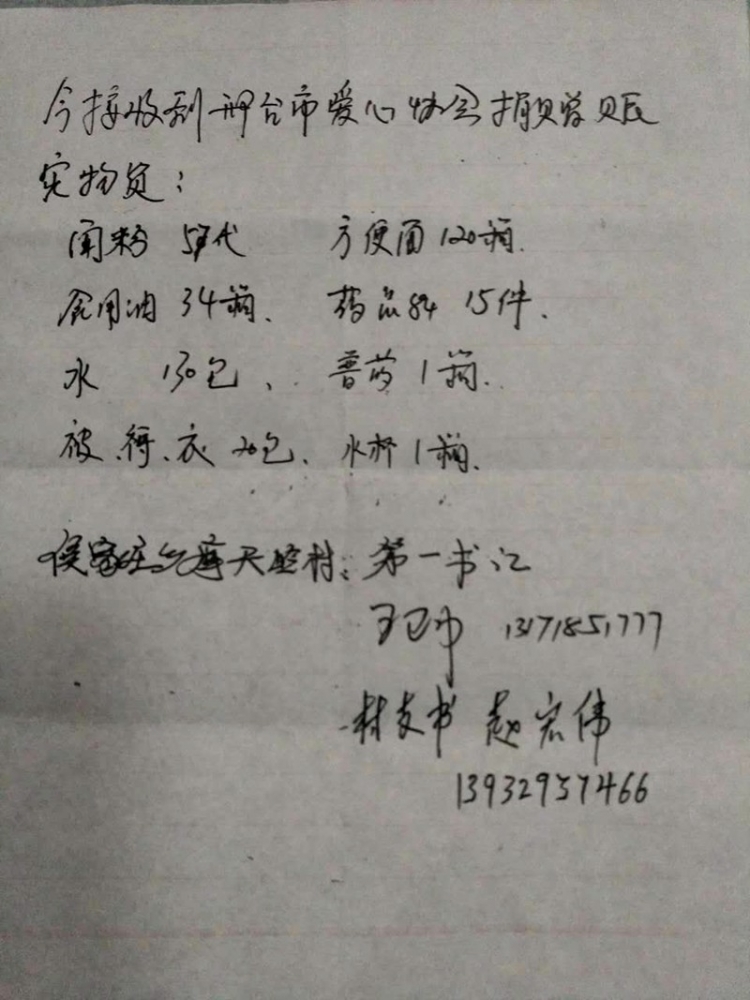 今接收到邢台市爱心协会捐赠赈
灾物资：
面粉 57代 方便面120箱.
食用油34箱、药品84 15件、
水 130包、普药1箱.
被、褥、衣20包、水杯1箱.
侯家庄乡摩天岭村：第一书记
王卫中 13171851777
村支书 赵宏伟
13932957466